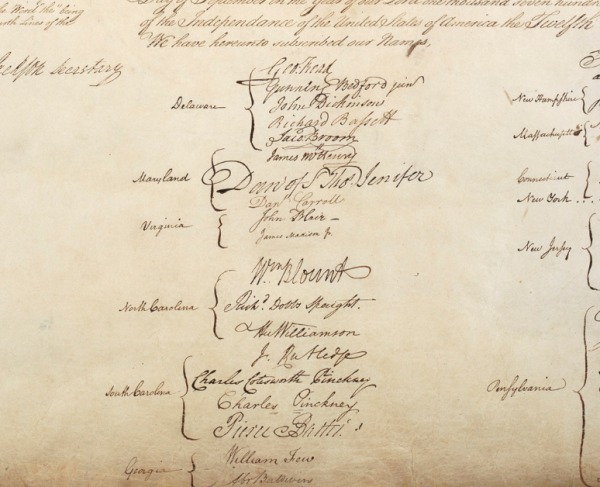 le Word "the" being
Day of September in the Year of our Lord one thousand seven hundred
of the Independance of the United States of America the Twelfth
We have hereunto subscribed our Names,
Secretary
Delaware
Geo: Read
Gunning Bedford jun
John Dickinson
Richard Bassett
Jaco: Broom
Maryland
James McHenry
Dan of St Thos. Jenifer
Danl Carroll
Virginia
John Blair –
James Madison Jr.
North Carolina
Wm Blount
Richd. Dobbs Spaight.
Hu Williamson
South Carolina
J. Rutledge
Charles Cotesworth Pinckney
Charles Pinckney
Pierce Butler.
Georgia
William Few
Abr Baldwin
New Hampshire
Massachusetts
Connecticut
New York . .
New Jersey
Pensylvania